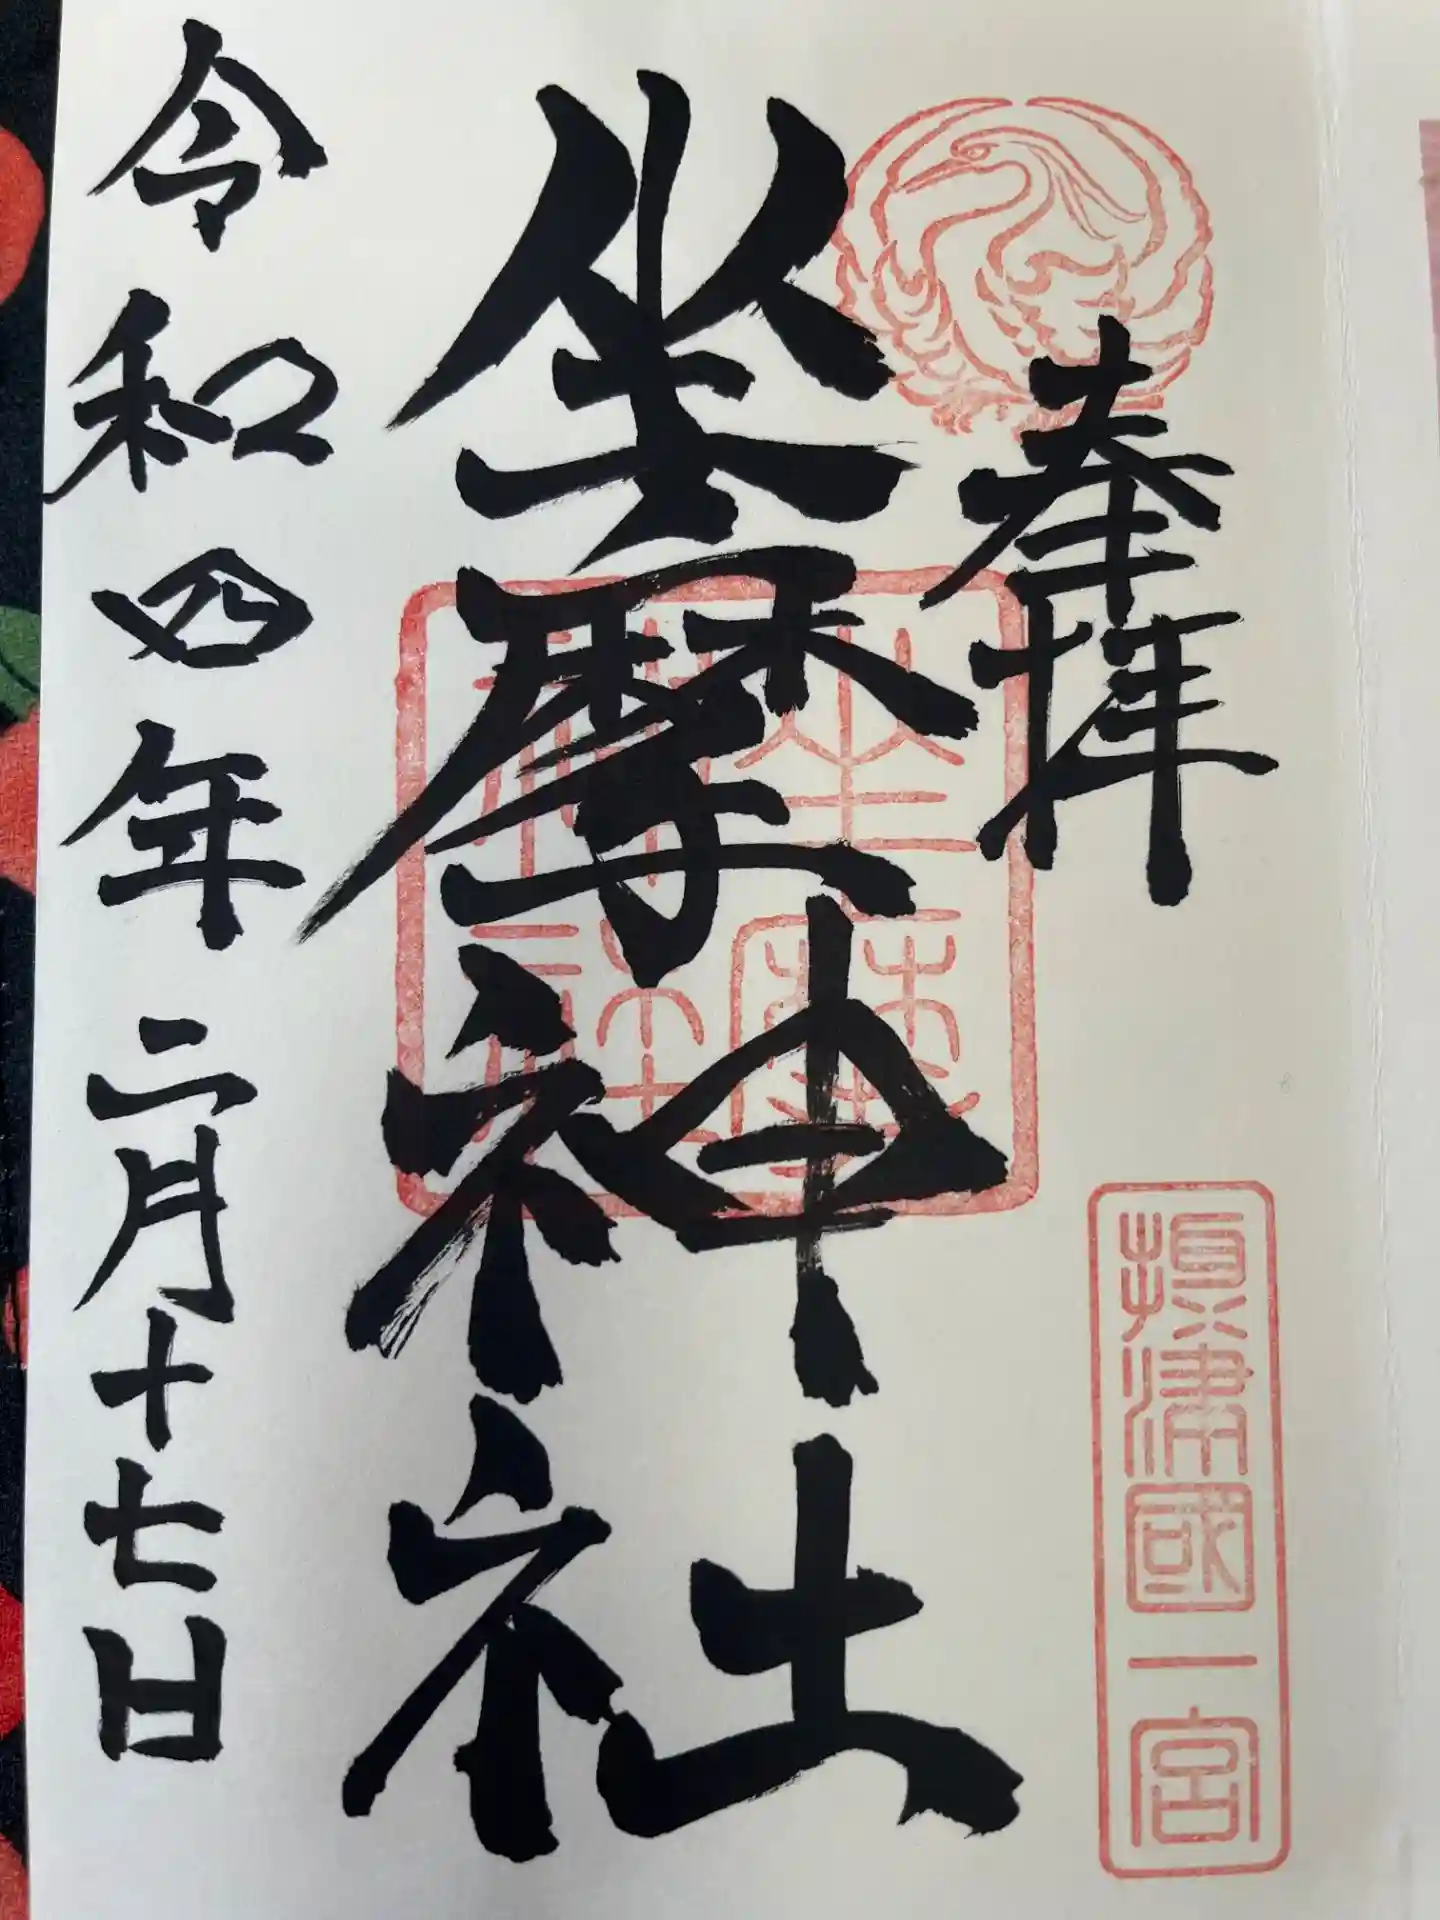 奉拝
摂津國一宮
坐摩神社
坐摩
神社
令和四年二月十七日